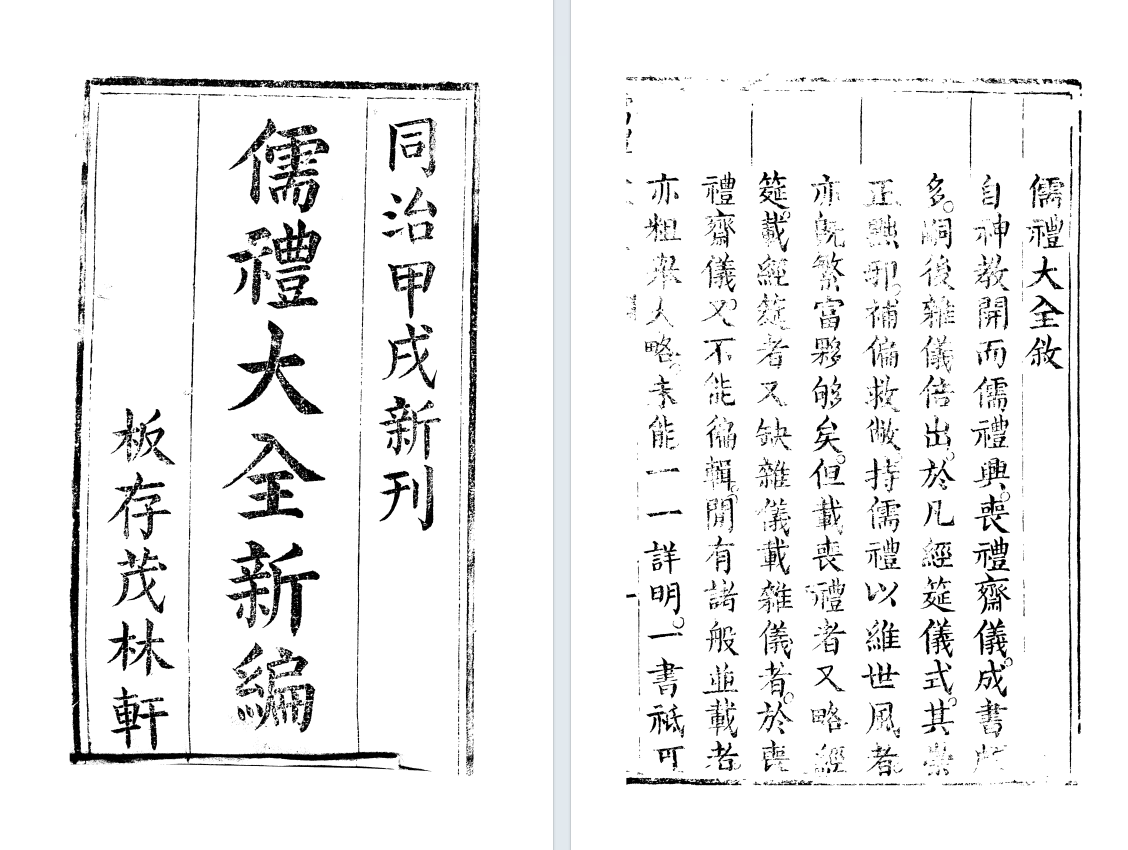 同治甲戌新刊
儒禮大全新編
板存茂林軒
儒禮大全敘
自神教開而儒禮興。喪禮齋儀。成書
多。嗣後雜儀倍出。於凡經筵儀式。其崇
正黜邪。補偏救敝。持儒禮以維世風者
亦既繁富夥够矣。但載喪禮者又略經
筵。載經筵者又缺雜儀。載雜儀者。於喪
禮齋儀。又不能徧輯。間有諸般並載者
亦粗舉大略。未能一一詳明。一書祇可